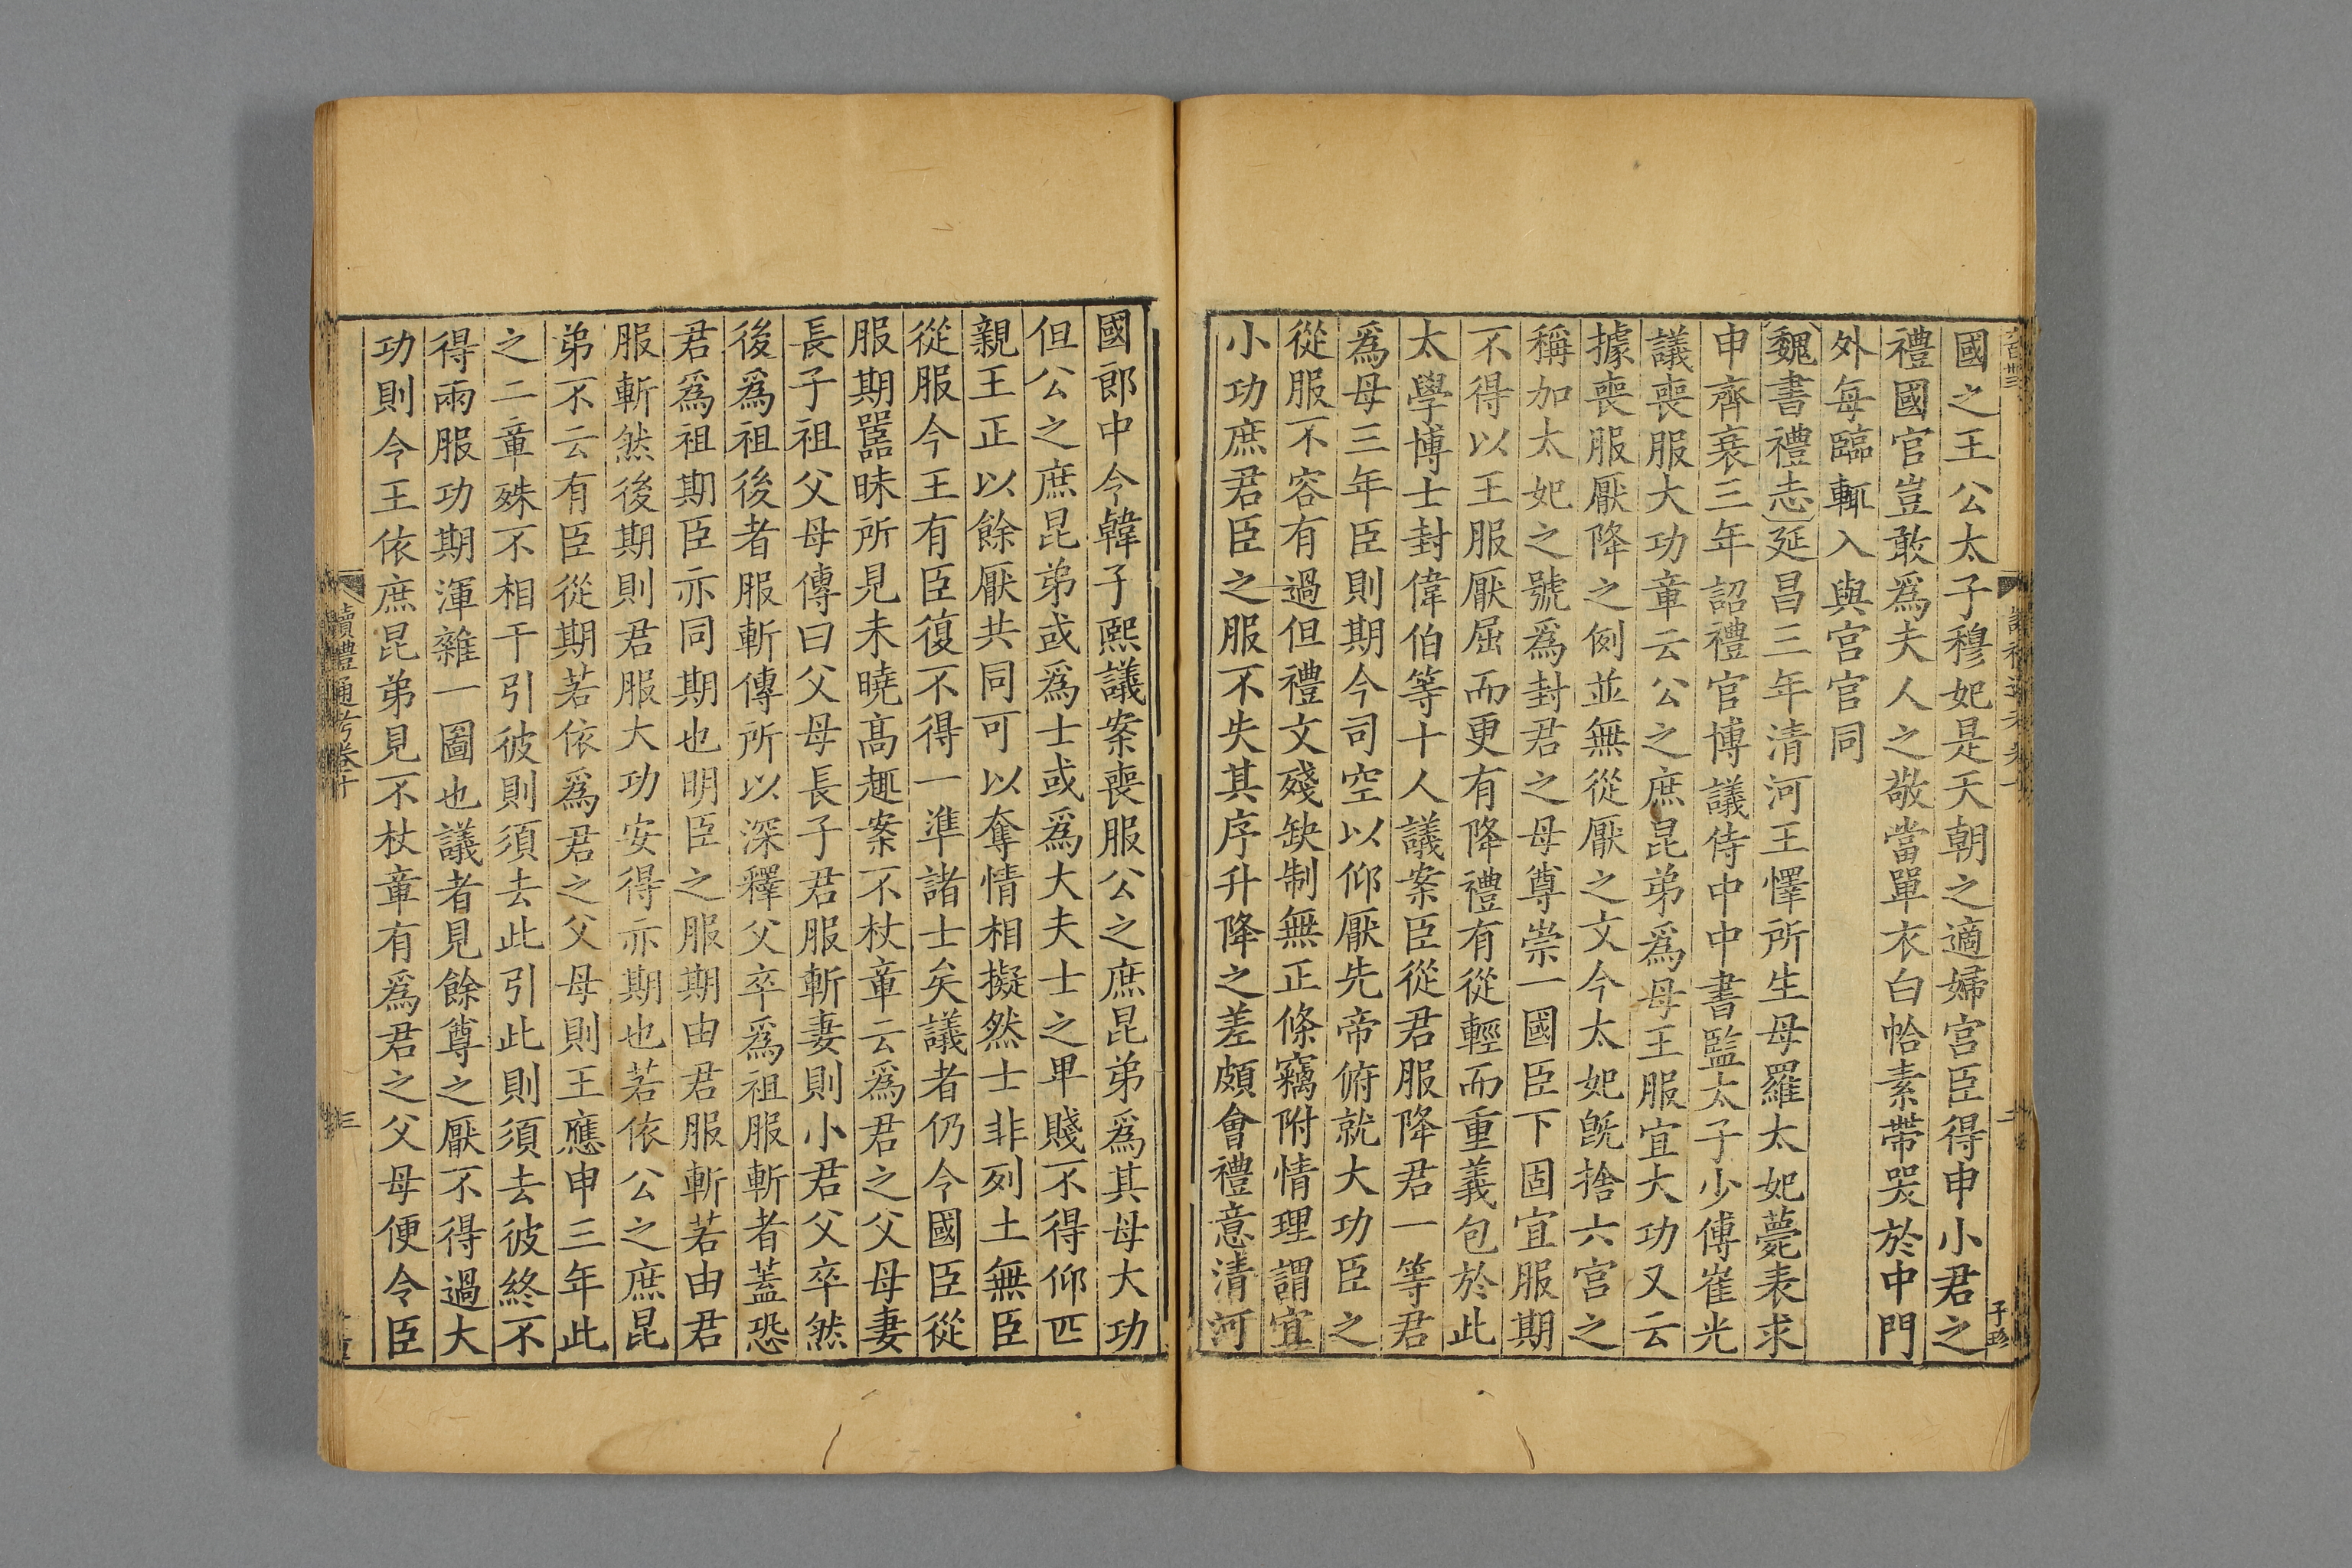 國之王公太子穆妃是天朝之適婦宮臣得申小君之
禮國官豈敢爲夫人之敬當單衣白帢素帶哭於中門
外每臨輒入與宮官同
魏書禮志延昌三年清河王懌所生母羅太妃薨表求
申齊衰三年詔禮官博議侍中中書監太子少傅崔光
議喪服大功章云公之庶昆弟爲母王服宜大功又云
據喪服厭降之例並無從厭之文今太妃旣捨六宮之
稱加太妃之號爲封君之母尊崇一國臣下固宜服期
不得以王服厭屈而更有降禮有從輕而重義包於此
太學博士封偉伯等十人議案臣從君服降君一等君
爲母三年臣則期今司空以仰厭先帝俯就大功臣之
從服不容有過但禮文殘缺制無正條竊附情理謂宜
小功庶君臣之服不失其序升降之差頗會禮意清河
國郎中令韓子熙議案喪服公之庶昆弟爲其母大功
但公之庶昆弟或爲士或爲大夫士之卑賤不得仰匹
親王正以餘厭共同可以奪情相擬然士非列土無臣
從服今王有臣復不得一準諸士矣議者仍令國臣從
服期嚚昧所見未曉高趣案不杖章云爲君之父母妻
長子祖父母傳曰父母長子君服斬妻則小君父卒然
後爲祖後者服斬傳所以深釋父卒爲祖服斬者蓋恐
君爲祖期臣亦同期也明臣之服期由君服斬若由君
服斬然後期則君服大功安得亦期也若依公之庶昆
弟不云有臣從期若依爲君之父母則王應申三年此
之二章殊不相干引彼則須去此引此則須去彼終不
得兩服功期渾雜一圖也議者見餘尊之厭不得過大
功則令王依庶昆弟見不杖章有爲君之父母便令臣
讀禮通考卷十
三